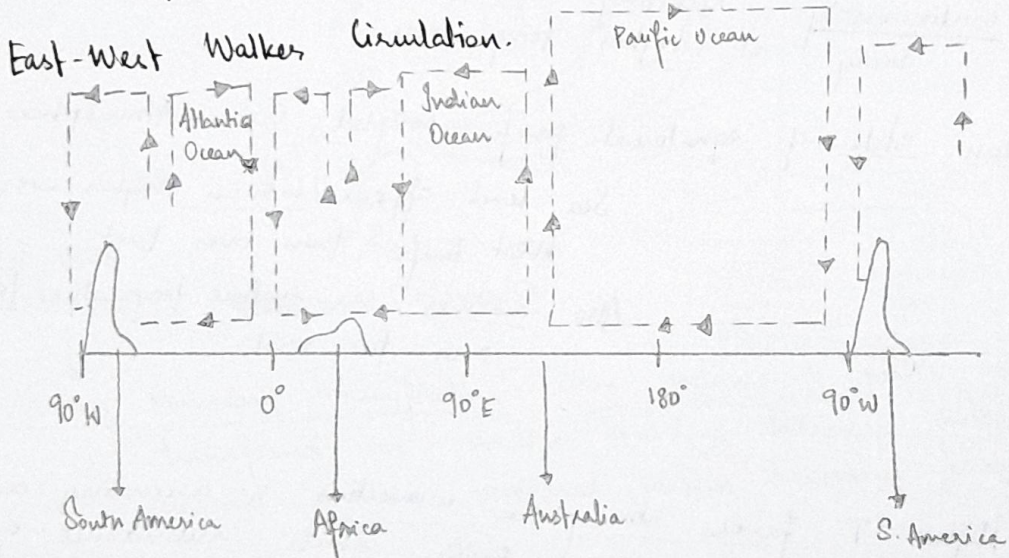 East-West Walker Circulation.
Pacific Ocean
Atlantic
Ocean
Indian
Ocean
90°W
0°
90°E
180°
90°W
South America
Africa
Australia
S. America